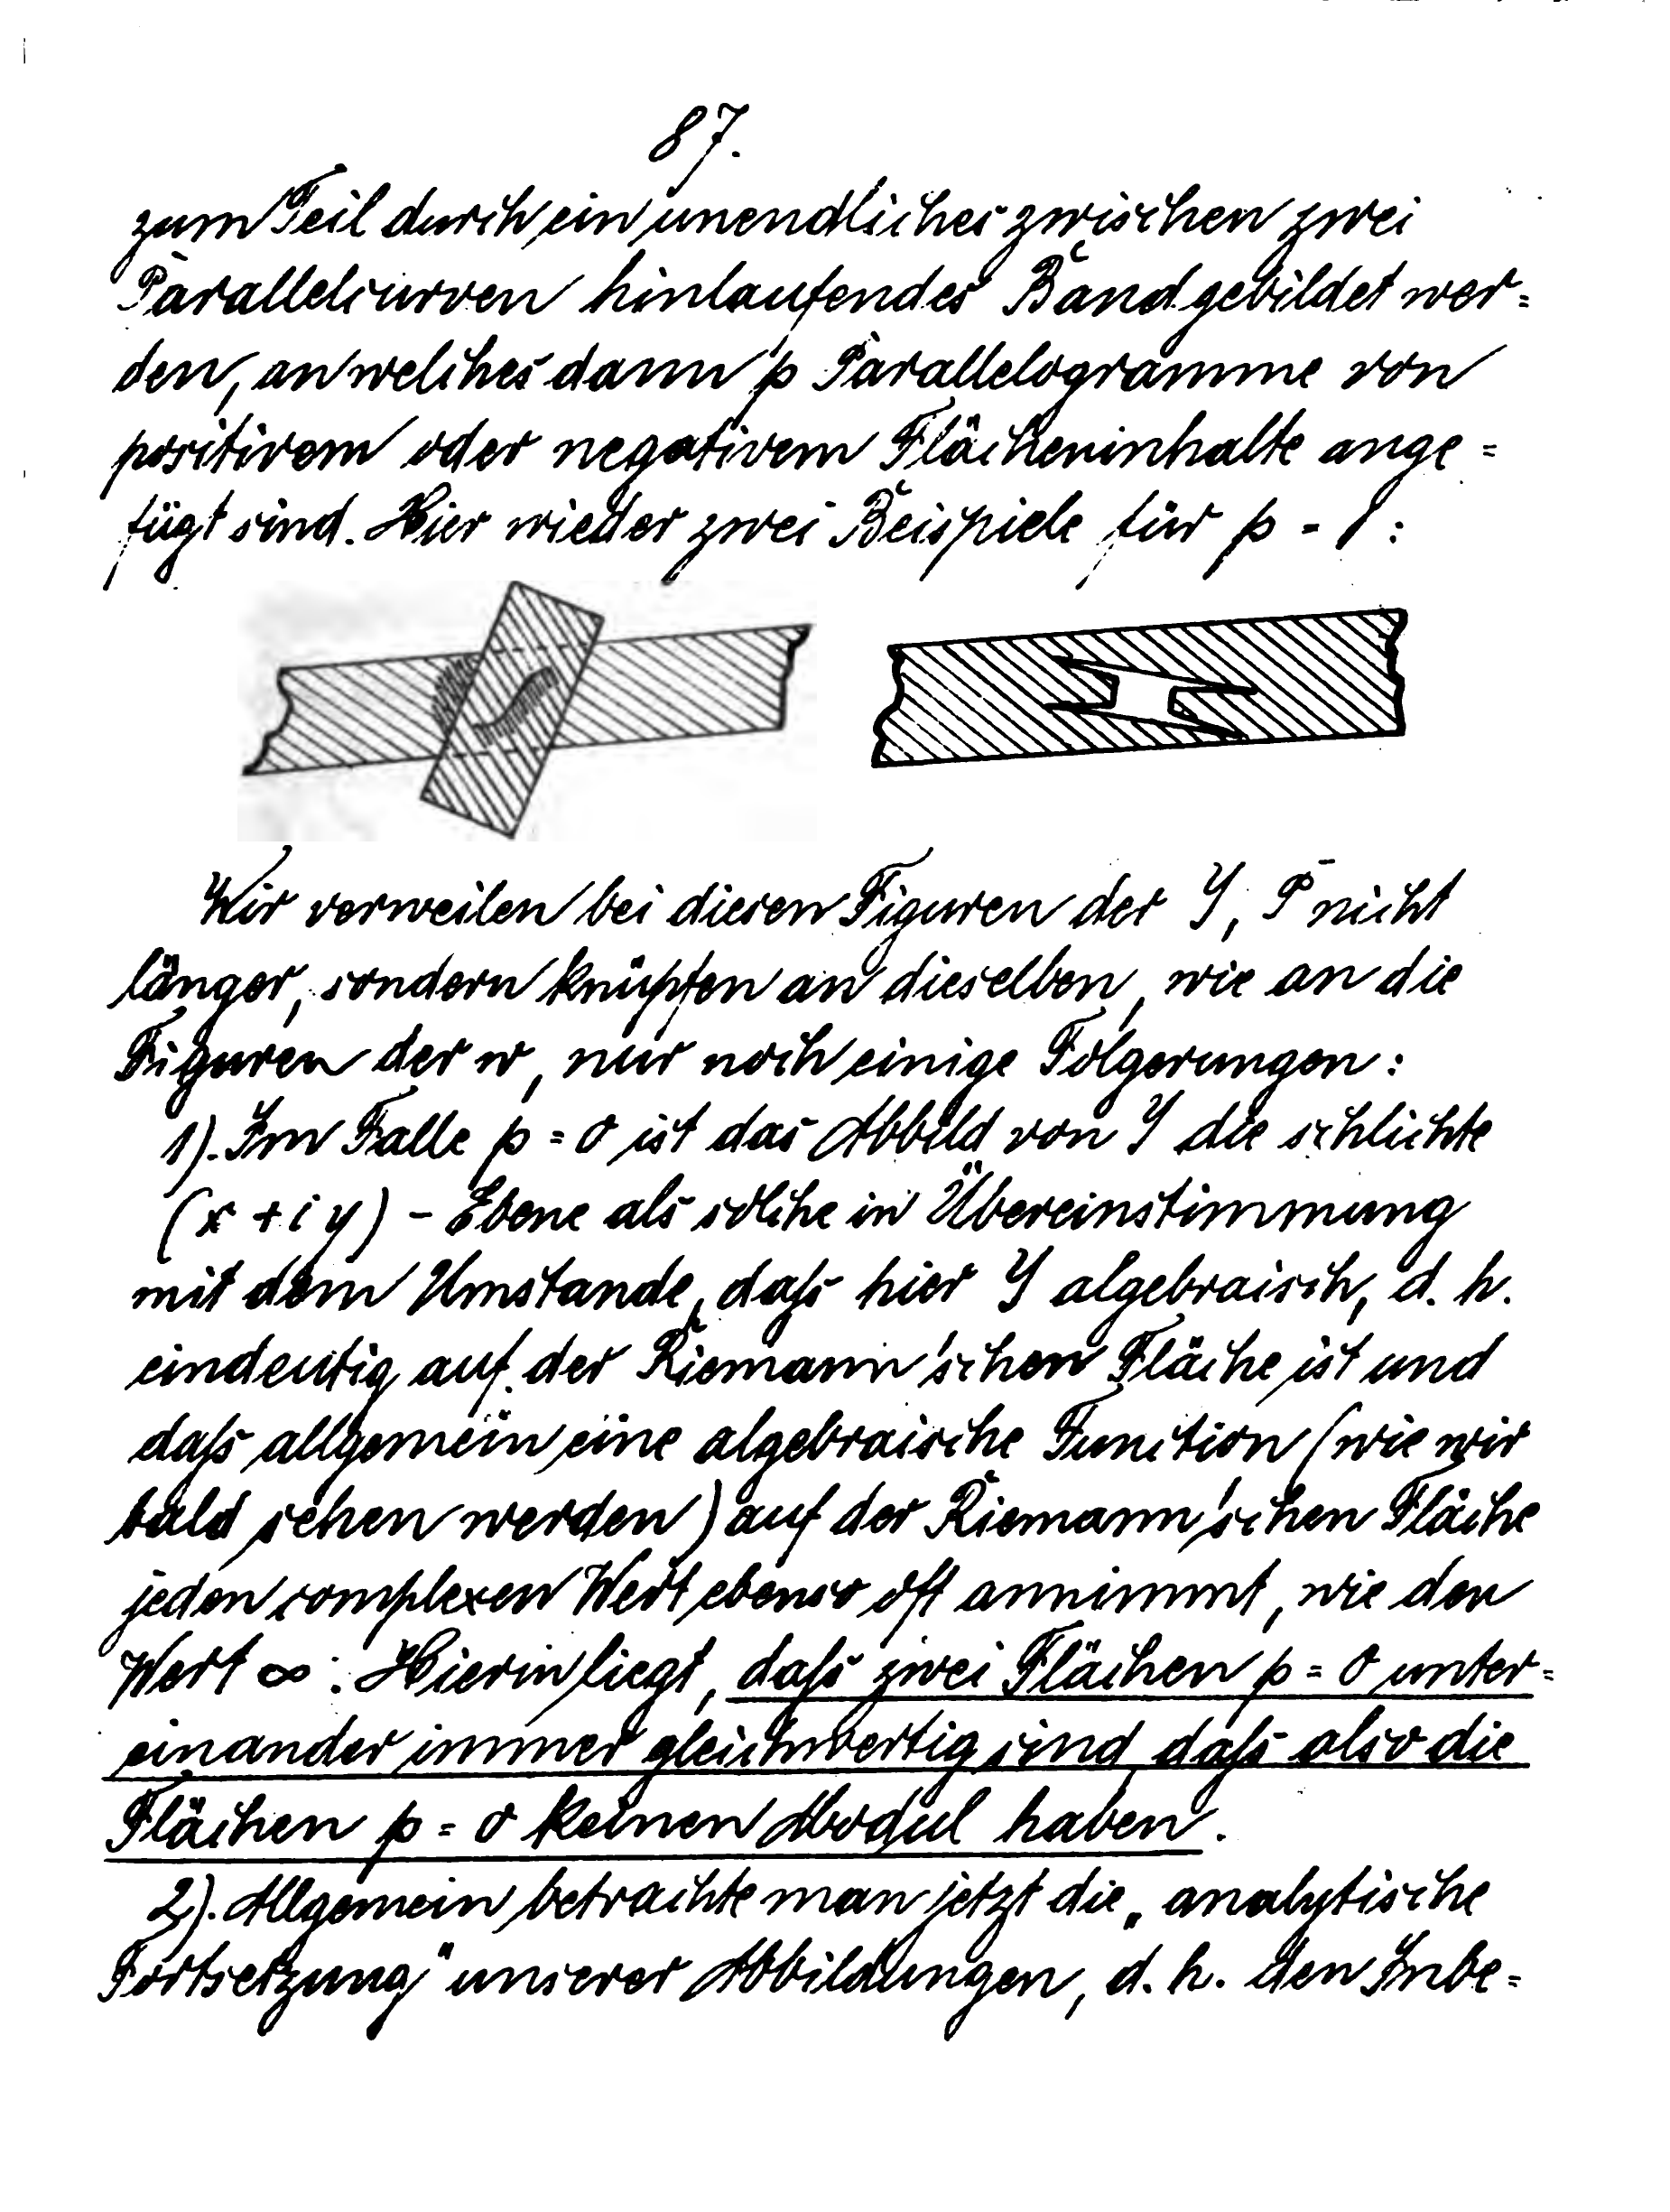 87.
zum Teil durch ein unendliches zwischen zwei
Parallelcurven hinlaufendes Band gebildet wer=
den, an welches dann p Parallelogramme von
positivem oder negativem Flächeninhalte ange=
fügt sind. Hier wieder zwei Beispiele für p = 1:
Wir verweilen bei diesen Figuren der Y, P nicht
länger, sondern knüpfen an dieselben, wie an die
Figuren der w, nur noch einige Folgerungen:
1). Im Falle p = 0 ist das Abbild von Y die schlichte
(x + i y) - Ebene als solche in Übereinstimmung
mit dem Umstande, daß hier Y algebraisch, d. h.
eindeutig auf der Riemann'schen Fläche ist und
daß allgemein eine algebraische Function (wie wir
bald sehen werden) auf der Riemann'schen Fläche
jeden complexen Wert ebenso oft annimmt, wie den
Wert ∞: Hierin liegt, daß zwei Flächen p = 0 unter=
einander immer gleichwertig sind, daß also die
Flächen p = 0 keinen Modul haben.
2). Allgemein betrachte man jetzt die „analytische
Fortsetzung" unserer Abbildungen, d. h. den Inbe=